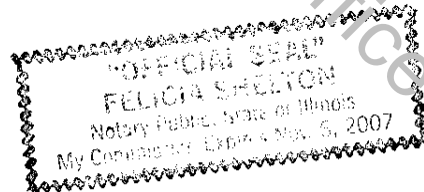 "OFFICIAL SEAL"
FELICIA SHELTON
Notary Public, State of Illinois
My Commission Expires Nov. 5, 2007